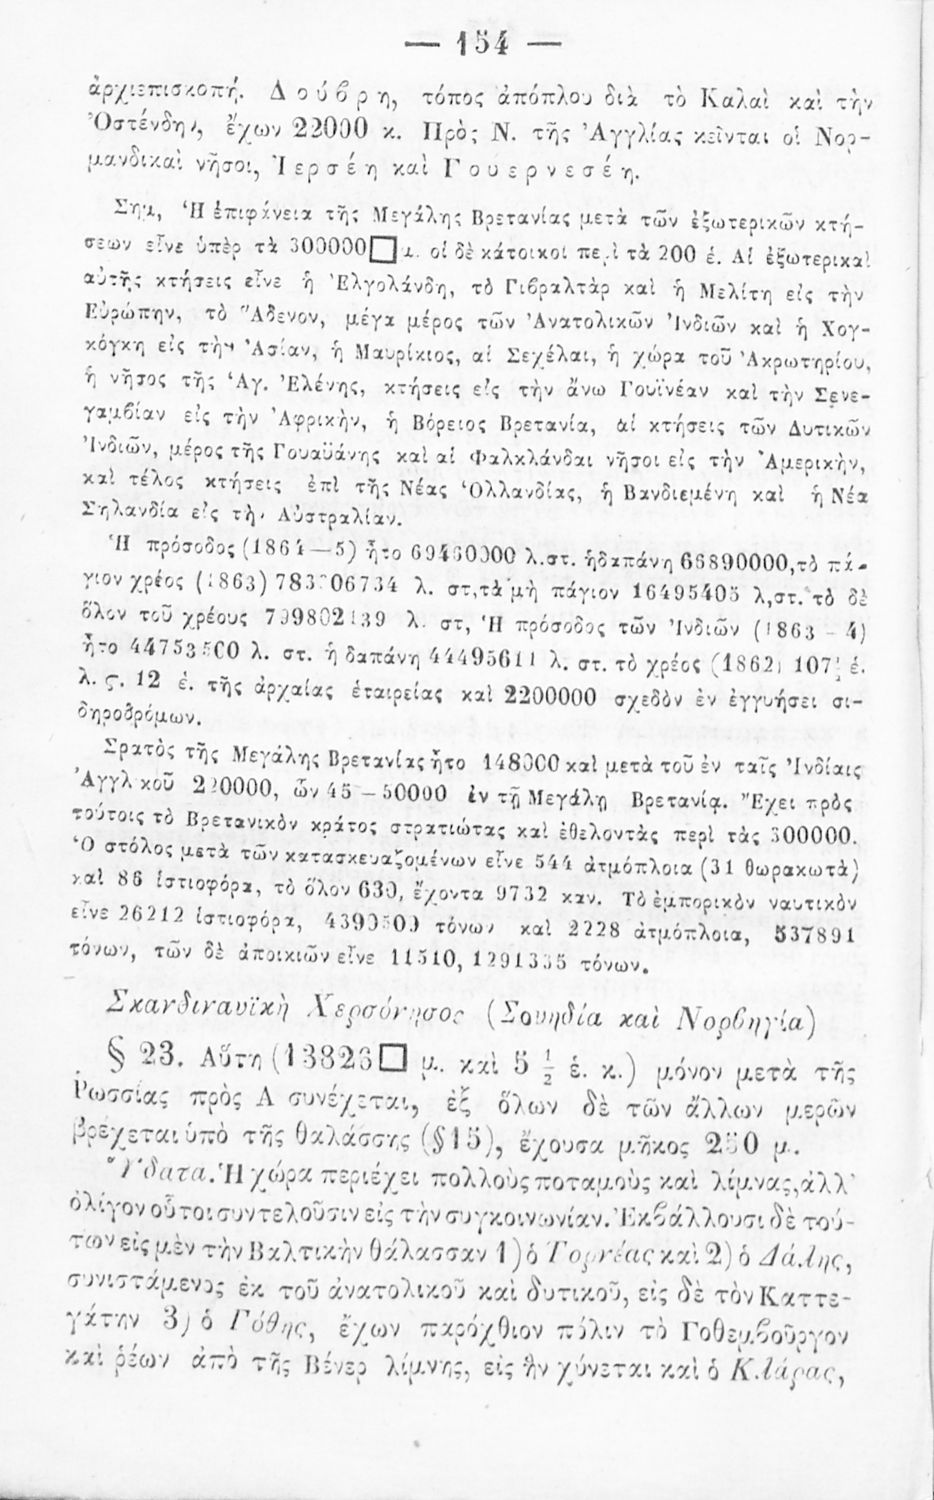 — 154 —
ἀρχιεπισκοπή. Δούβρη, τόπος ἀπόπλου διὰ τὸ Καλαὶ καὶ τὴν
Ὀστένδην, ἔχων 22000 κ. Πρὸς Ν. τῆς Ἀγγλίας κεῖνται οἱ Νορ-
μανδικαὶ νῆσοι, Ἰερσέη καὶ Γουερνεσέη.
Σημ, Ἡ ἐπιφάνεια τῆς Μεγάλης Βρετανίας μετὰ τῶν ἐξωτερικῶν κτή-
σεων εἶνε ὑπὲρ τὰ 300000□μ. οἱ δὲ κάτοικοι περὶ τὰ 200 ἑ. Αἱ ἐξωτερικαὶ
αὐτῆς κτήσεις εἶνε ἡ Ἑλγολάνδη, τὸ Γιβραλτὰρ καὶ ἡ Μελίτη εἰς τὴν
Εὐρώπην, τὸ Ἄδενον, μέγα μέρος τῶν Ἀνατολικῶν Ἰνδιῶν καὶ ἡ Χογ-
κόγκη εἰς τὴν Ἀσίαν, ἡ Μαυρίκιος, αἱ Σεχέλαι, ἡ χώρα τοῦ Ἀκρωτηρίου,
ἡ νῆσος τῆς Ἁγ. Ἑλένης, κτήσεις εἰς τὴν ἄνω Γουϊνέαν καὶ τὴν Σενε-
γαμβίαν εἰς τὴν Ἀφρικὴν, ἡ Βόρειος Βρετανία, αἱ κτήσεις τῶν Δυτικῶν
Ἰνδιῶν, μέρος τῆς Γουαϋάνης καὶ αἱ Φαλκλάνδαι νῆσοι εἰς τὴν Ἀμερικὴν,
καὶ τέλος κτήσεις ἐπὶ τῆς Νέας Ὁλλανδίας, ἡ Βανδιεμένη καὶ ἡ Νέα
Σηλανδία εἰς τὴν Αὐστραλίαν.
Ἡ πρόσοδος (1864—5) ἦτο 69460000 λ.στ. ἡ δαπάνη 66890000, τὸ πά-
γιον χρέος (1863) 783306734 λ. στ, τὰ μὴ πάγιον 16495405 λ, στ. τὸ δὲ
ὅλον τοῦ χρέους 799802139 λ. στ, Ἡ πρόσοδος τῶν Ἰνδιῶν (1863 – 4)
ἦτο 44753500 λ. στ. ἡ δαπάνη 44495611 λ. στ. τὸ χρέος (1862) 107 ἑ.
λ. ς. 12 ἑ. τῆς ἀρχαίας ἑταιρείας καὶ 2200000 σχεδὸν ἐν ἐγγυήσει σι-
δηροδρόμων.
Σρατὸς τῆς Μεγάλης Βρετανίας ἦτο 148000 καὶ μετὰ τοῦ ἐν ταῖς Ἰνδίαις
Ἀγγλικοῦ 220000, ὧν 45 – 50000 ἐν τῇ Μεγάλῃ Βρετανίᾳ. Ἔχει πρὸς
τούτοις τὸ Βρετανικὸν κράτος στρατιώτας καὶ ἐθελοντὰς περὶ τὰς 300000.
Ὁ στόλος μετὰ τῶν κατασκευαζομένων εἶνε 544 ἀτμόπλοια (31 θωρακωτὰ)
καὶ 86 ἱστιοφόρα, τὸ ὅλον 630, ἔχοντα 9732 καν. Τὸ ἐμπορικὸν ναυτικὸν
εἶνε 26212 ἱστιοφόρα, 4390509 τόνων καὶ 2228 ἀτμόπλοια, 537891
τόνων, τῶν δὲ ἀποικιῶν εἶνε 11510, 1291335 τόνων.
Σκανδιναυϊκὴ Χερσόνησος (Σουηδία καὶ Νορβηγία)
§ 23. Αὕτη (13826□ μ. καὶ 5 ½ ἑ. κ.) μόνον μετὰ τῆς
Ῥωσσίας πρὸς Α συνέχεται, ἐξ ὅλων δὲ τῶν ἄλλων μερῶν
βρέχεται ὑπὸ τῆς θαλάσσης (§15), ἔχουσα μῆκος 250 μ.
Ὕδατα. Ἡ χώρα περιέχει πολλοὺς ποταμοὺς καὶ λίμνας, ἀλλ'
ὀλίγον οὗτοι συντελοῦσιν εἰς τὴν συγκοινωνίαν. Ἐκβάλλουσι δὲ τού-
των εἰς μὲν τὴν Βαλτικὴν θάλασσαν 1) ὁ Τορνέας καὶ 2) ὁ Δάλης,
συνιστάμενος ἐκ τοῦ ἀνατολικοῦ καὶ δυτικοῦ, εἰς δὲ τὸν Καττε-
γάτην 3) ὁ Γόθης, ἔχων παρόχθιον πόλιν τὸ Γοθεμβοῦργον
καὶ ῥέων ἀπὸ τῆς Βένερ λίμνης, εἰς ἣν χύνεται καὶ ὁ Κλάρας,